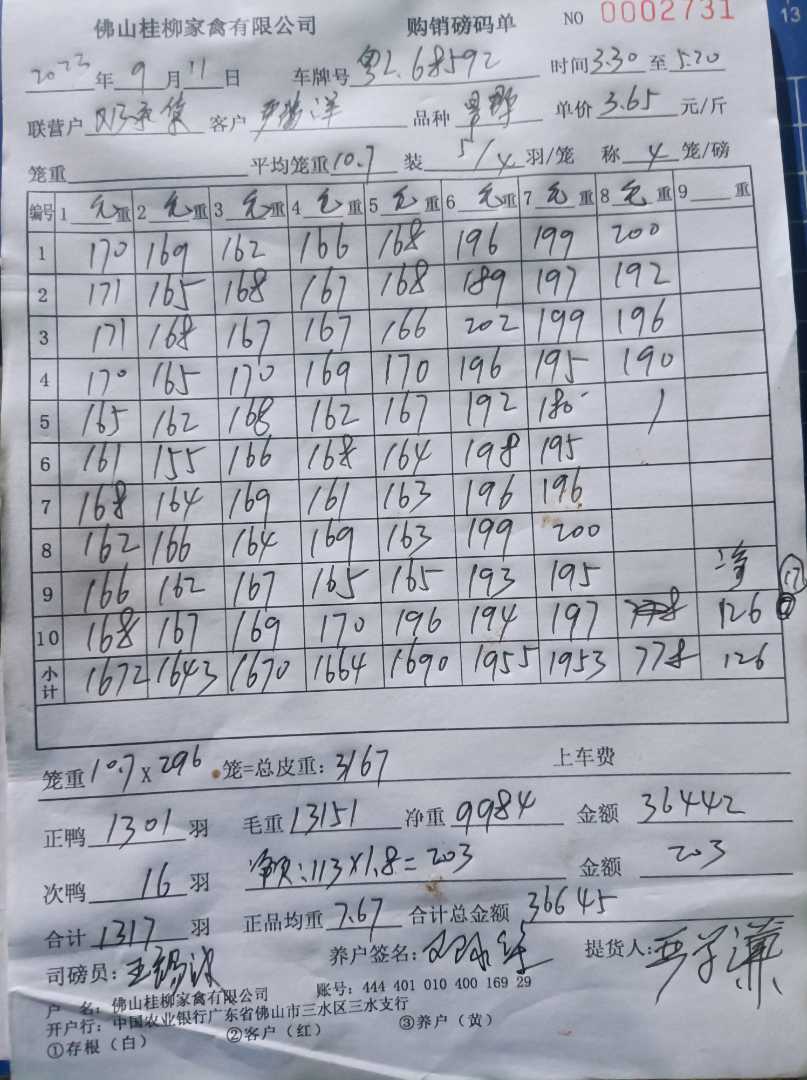 佛山桂柳家禽有限公司 购销磅码单 NO 0002731
13
2023年9月11日 车牌号粤L.68592 时间3.30至5.20
联营户 客户 洋 品种 单价3.65元/斤
笼重 平均笼重10.7 装5/4羽/笼 称4笼/磅
编号 1毛重 2毛重 3毛重 4毛重 5毛重 6毛重 7毛重 8毛重 9重
1 170 169 162 166 168 196 199 200
2 171 165 168 167 168 189 197 192
3 171 168 167 167 166 202 199 196
4 170 165 170 169 170 196 195 190
5 165 162 168 162 167 192 180 /
6 161 155 166 168 164 198 195
7 168 164 169 161 163 196 196
8 162 166 164 169 163 199 200
9 166 162 167 165 165 193 195 净 17
10 168 167 169 170 196 194 197 126
小计 1672 1643 1670 1664 1690 1955 1953 778 126
笼重10.7x296笼=总皮重:3167 上车费
正鸭1301羽 毛重13151 净重9984 金额36442
次鸭16羽 :113x1.8=203 金额203
合计1317羽 正品均重7.67 合计总金额36645
司磅员: 养户签名: 提货人:
户 名:佛山桂柳家禽有限公司 账号:444 401 010 400 169 29
开户行:中国农业银行广东省佛山市三水区三水支行
①存根(白) ②客户(红) ③养户(黄)